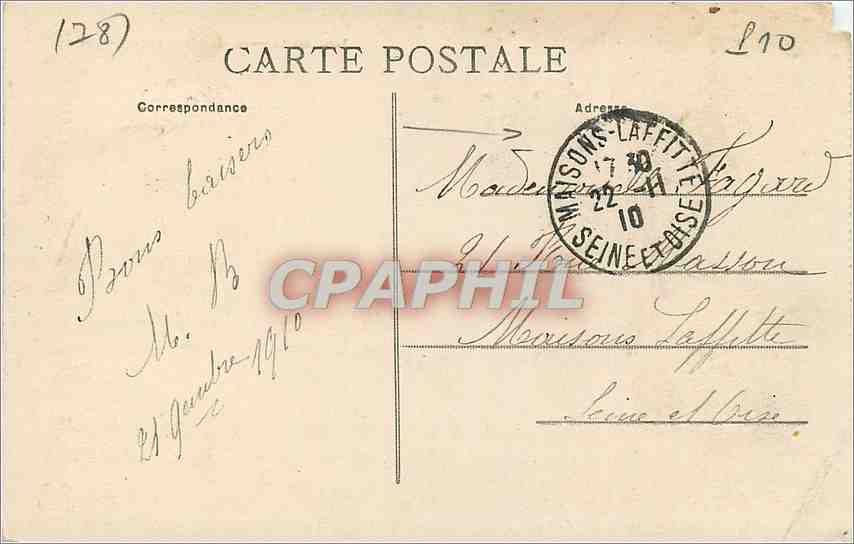 (28)
£10
CARTE POSTALE
Correspondance
Adresse
Bons baisers
M. B
21 9embre 1910
MAISONS-LAFFITTE
17 30
22 - 11
10
SEINE ET OISE
Mademoiselle Fagard
21
Maisons Laffitte
Seine et Oise
CPAPHIL